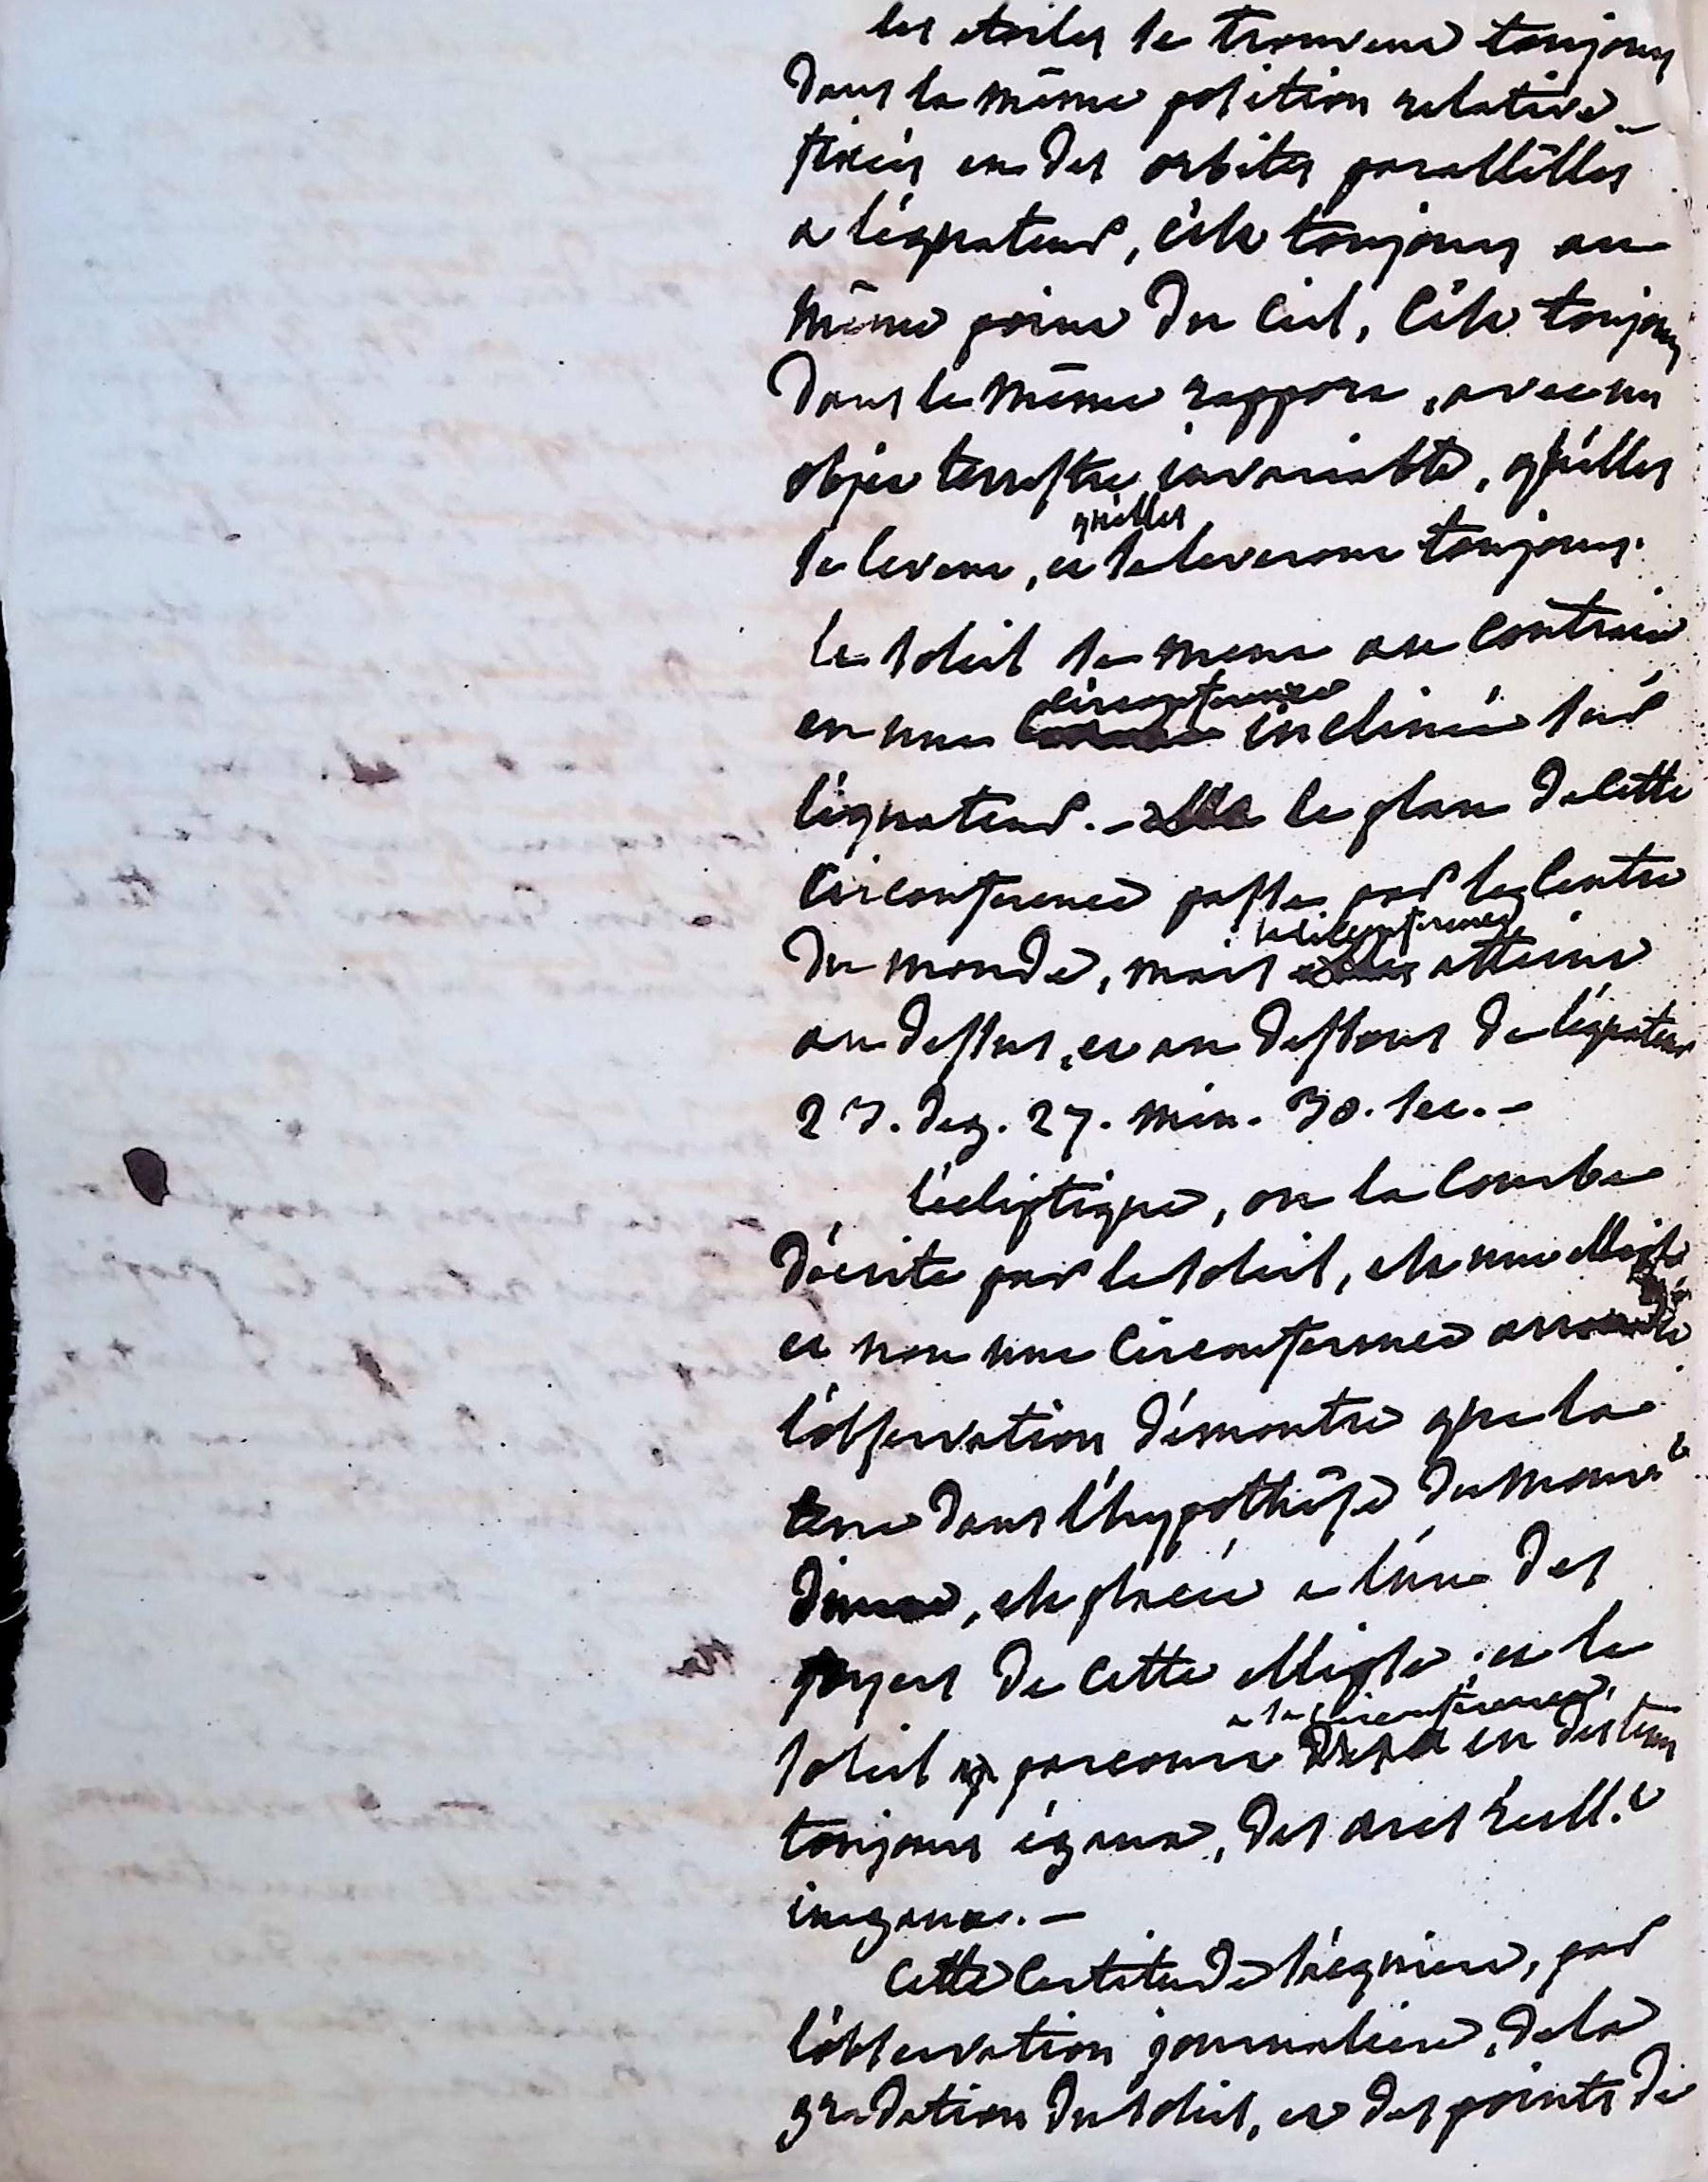 les etoiles se trouvent toujours
dans la même position relative_
fixées en des orbites parallèlles
a l'équateur, c'est toujours au
même point du ciel, c'est toujours
dans le même rapport, avec un
objet terrestre invariable, qu'elles
se levent, et qu'elles se leveront toujours.
le soleil se meut au contraire
en une circonférence inclinée sur
l'équateur. _ le plan de cette
circonference passe par le centre
du monde, mais la circonférence atteint
au dessus, et au dessous de l'équateur
23. deg. 27. min. 30. sec. _
l'écliptique, ou la courbe
décrite par le soleil, est une ellipse
et non une circonference
l'observation démontre que la
terre dans l'hypothèse du mouv.t
diurne, est placée a l'un des
foyers de cette ellipse; et le
soleil parcourt a la circonférence, en des tems
toujours égaux, des arcs réell.t
inegaux. _
cette certitude s'acquiert, par
l'observation journaliere, de la
gradation du soleil, et des points de